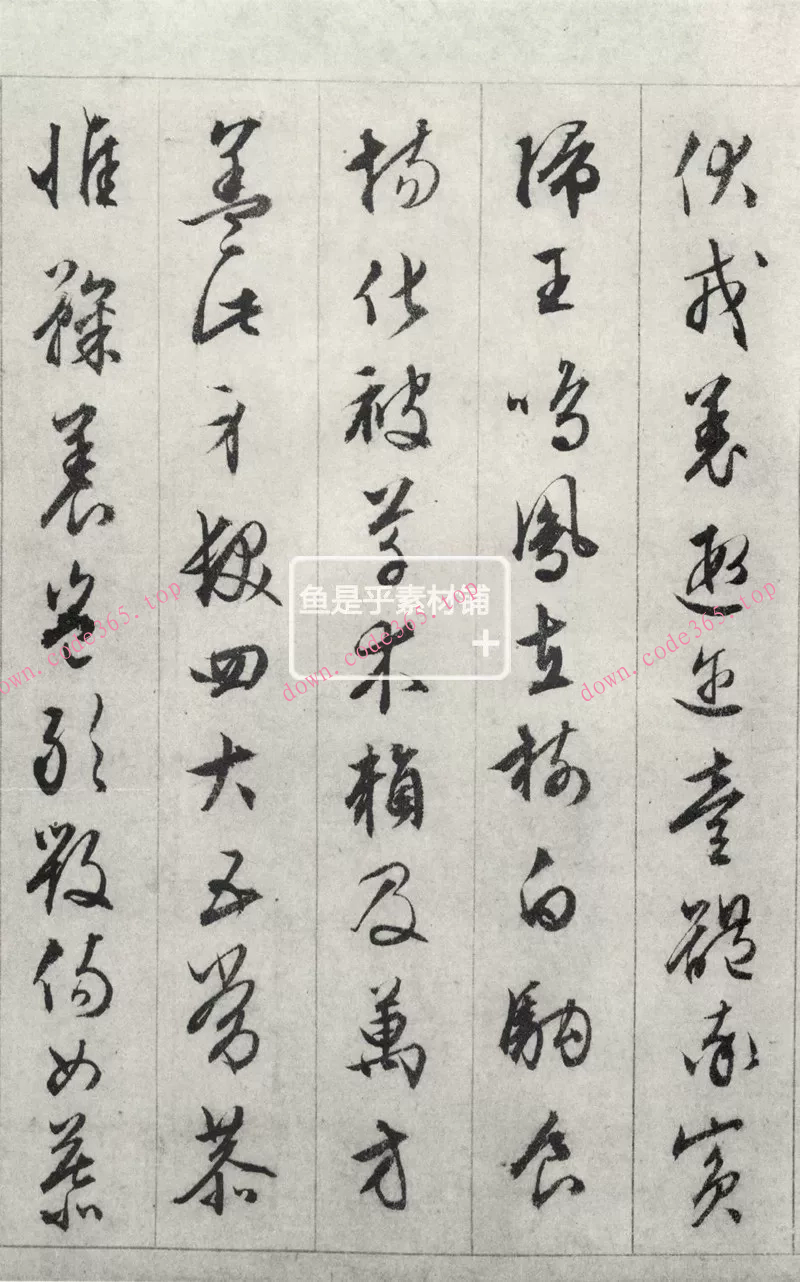 伏戎羌遐邇壹體率賓
歸王鳴鳳在樹白駒食
場化被草木賴及萬方
蓋此身髮四大五常恭
惟鞠養豈敢毀傷女慕
鱼是乎素材铺
own.code365.top
down.code365.top
down.code365.top